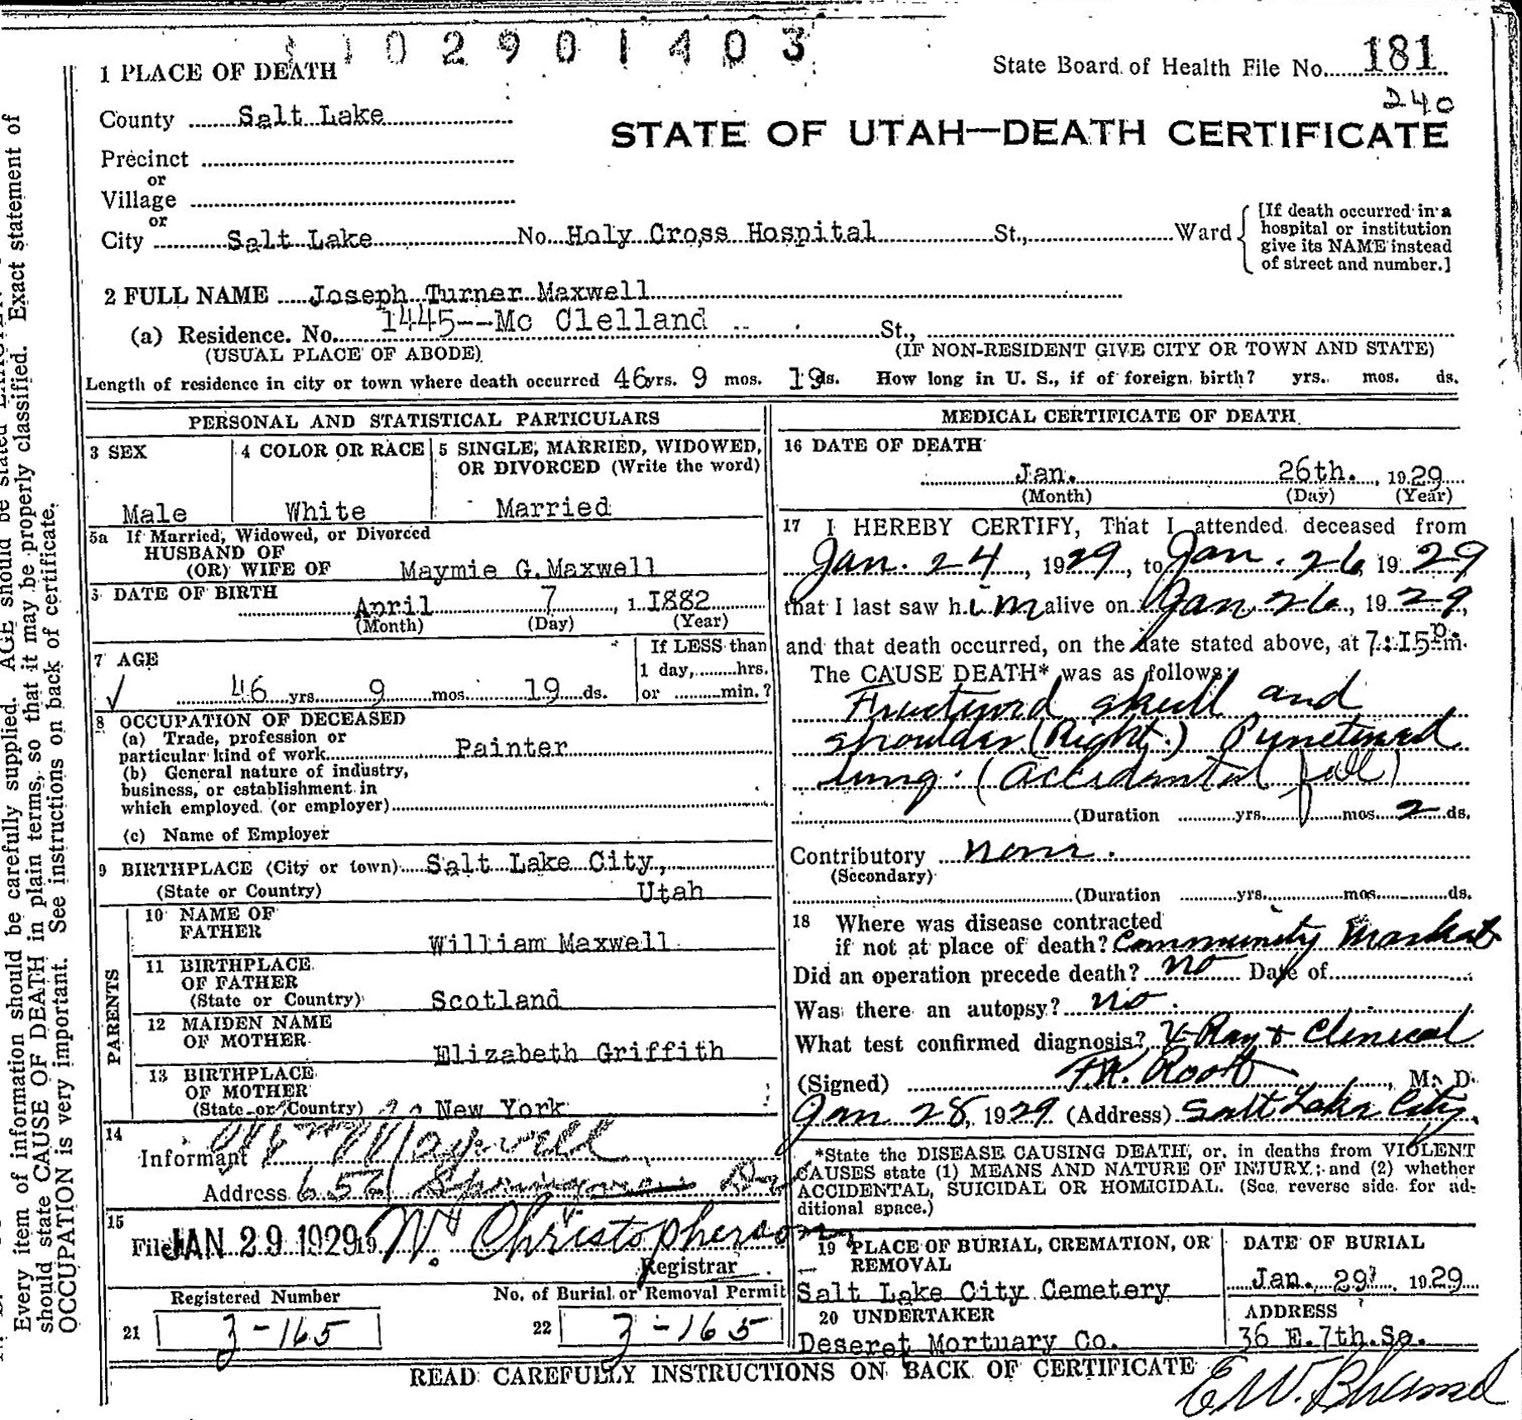 1 1 0 2 9 0 1 4 0 3
1 PLACE OF DEATH
State Board of Health File No. 181
240
County Salt Lake
STATE OF UTAH—DEATH CERTIFICATE
Precinct
or
Village
or
City Salt Lake No. Holy Cross Hospital St., Ward
[If death occurred in a
hospital or institution
give its NAME instead
of street and number.]
2 FULL NAME Joseph Turner Maxwell
(a) Residence. No. 1445--Mc Clelland St.,
(USUAL PLACE OF ABODE) (IF NON-RESIDENT GIVE CITY OR TOWN AND STATE)
Length of residence in city or town where death occurred 46 yrs. 9 mos. 19 ds. How long in U. S., if of foreign birth? yrs. mos. ds.
PERSONAL AND STATISTICAL PARTICULARS
3 SEX
Male
4 COLOR OR RACE
White
5 SINGLE, MARRIED, WIDOWED,
OR DIVORCED (Write the word)
Married
5a If Married, Widowed, or Divorced
HUSBAND OF
(OR) WIFE OF Maymie G. Maxwell
DATE OF BIRTH
April 7, 1 1882
(Month) (Day) (Year)
7 AGE
46 yrs. 9 mos. 19 ds.
If LESS than
1 day, hrs.
or min.?
8 OCCUPATION OF DECEASED
(a) Trade, profession or
particular kind of work Painter
(b) General nature of industry,
business, or establishment in
which employed (or employer)
(c) Name of Employer
9 BIRTHPLACE (City or town) Salt Lake City,
(State or Country) Utah
PARENTS
10 NAME OF
FATHER William Maxwell
11 BIRTHPLACE
OF FATHER
(State or Country) Scotland
12 MAIDEN NAME
OF MOTHER Elizabeth Griffith
13 BIRTHPLACE
OF MOTHER
(State or Country) New York
14
Informant Wm Maxwell
Address
15
Filed JAN 29 1929 19 Christopherson
Registrar
Registered Number
21 3-165
No. of Burial or Removal Permit
22 3-165
MEDICAL CERTIFICATE OF DEATH
16 DATE OF DEATH
Jan. 26th., 1929
(Month) (Day) (Year)
17 I HEREBY CERTIFY, That I attended deceased from
Jan. 24, 1929, to Jan. 26 1929
that I last saw him alive on Jan 26, 1929,
and that death occurred, on the date stated above, at 7:15 p.m.
The CAUSE DEATH* was as follows:
Fractured skull and
shoulder (Right.) Punctured
lung. (Accidental fall)
(Duration yrs. mos. 2 ds.
Contributory none.
(Secondary)
(Duration yrs. mos. ds.
18 Where was disease contracted
if not at place of death? Community Market
Did an operation precede death? no Date of
Was there an autopsy? no.
What test confirmed diagnosis? X-Ray + Clinical
(Signed) Root, M. D.
Jan 28, 1929 (Address) Salt Lake City.
*State the DISEASE CAUSING DEATH, or, in deaths from VIOLENT
CAUSES state (1) MEANS AND NATURE OF INJURY; and (2) whether
ACCIDENTAL, SUICIDAL OR HOMICIDAL. (See reverse side for ad-
ditional space.)
19 PLACE OF BURIAL, CREMATION, OR
REMOVAL
Salt Lake City Cemetery
DATE OF BURIAL
Jan. 29, 1929
20 UNDERTAKER
Deseret Mortuary Co.
ADDRESS
36 E. 7th. So.
READ CAREFULLY INSTRUCTIONS ON BACK OF CERTIFICATE
Every item of information should be carefully supplied. AGE should be stated
should state CAUSE OF DEATH in plain terms, so that it may be properly classified. Exact statement of
OCCUPATION is very important. See instructions on back of certificate.